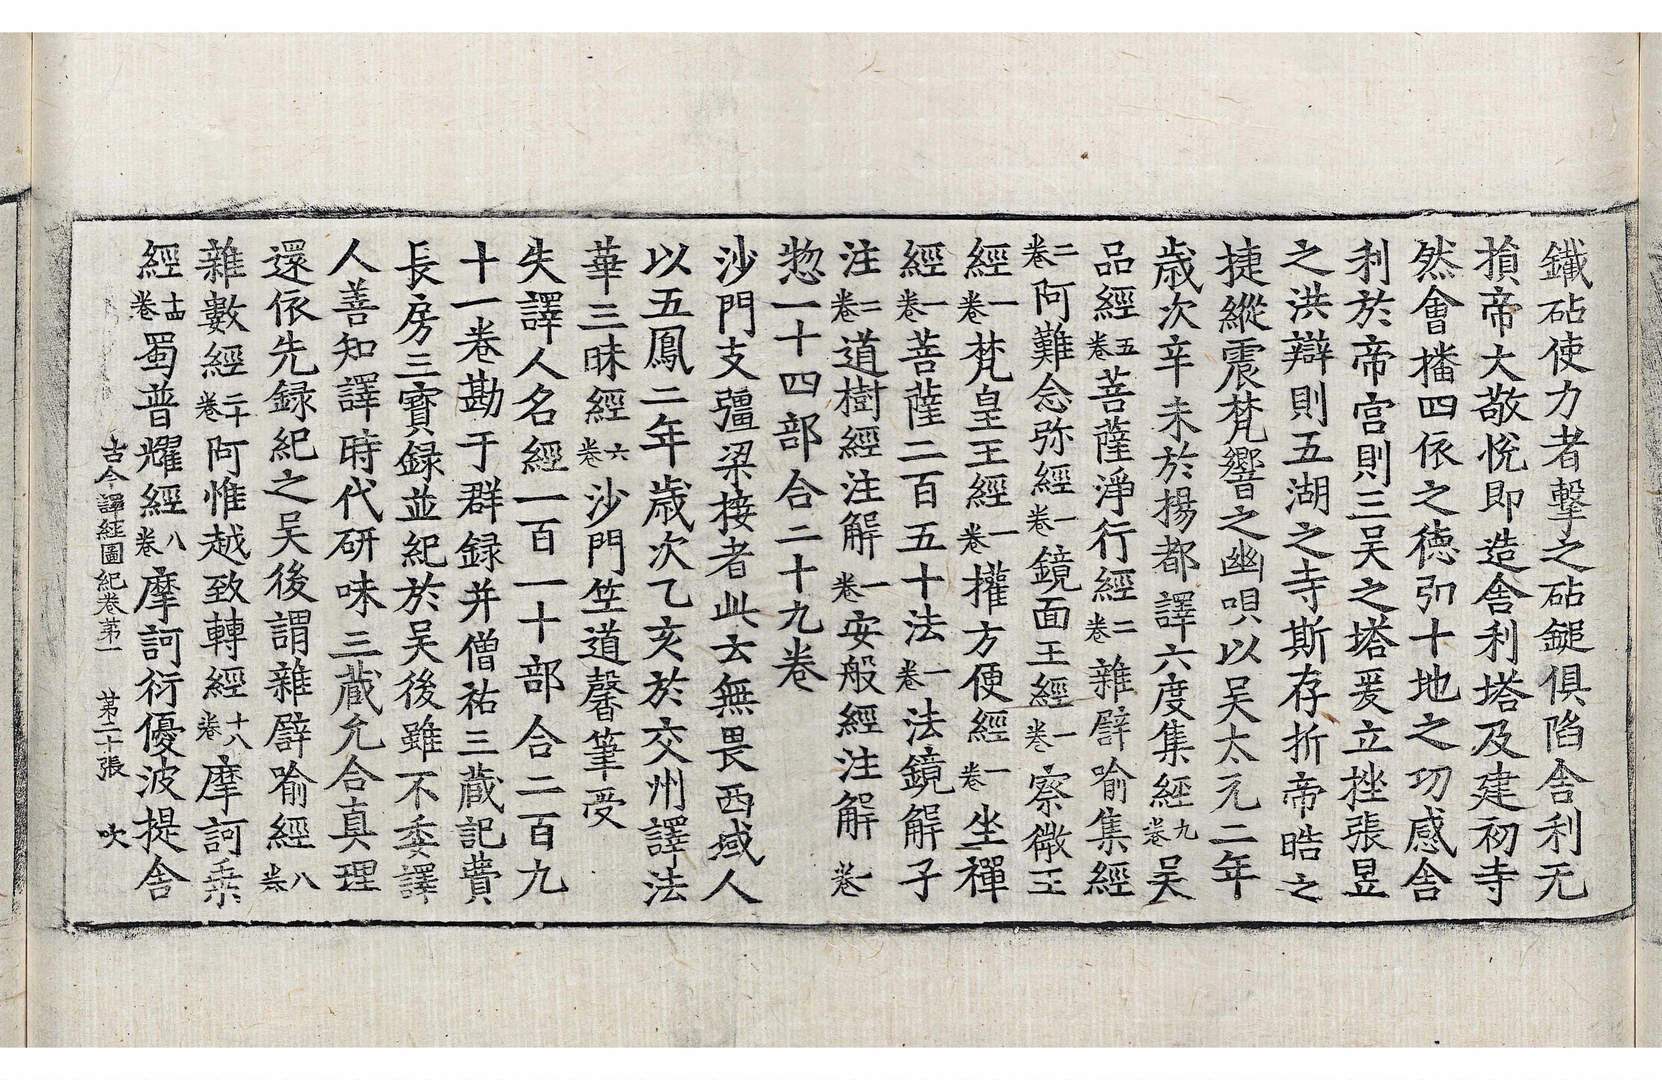 鐵砧使力者擊之砧鎚俱陷舍利无
損帝大敬悅即造舍利塔及建初寺
然會播四依之德引十地之功感舍
利於帝宮則三吳之塔爰立挫張昱
之洪辯則五湖之寺斯存折帝皓之
捷縱震梵響之幽唄以吳太元二年
歲次辛未於揚都譯六度集經九卷吳
品經五卷菩薩淨行經二卷雜譬喻集經
二卷阿難念弥經一卷鏡面王經一卷察微王
經一卷梵皇王經一卷權方便經一卷坐禪
經一卷菩薩二百五十法一卷法鏡解子
注二卷道樹經注解一卷安般經注解一卷
惣一十四部合二十九卷
沙門支彊梁接者此云無畏西域人
以五鳳二年歲次乙亥於交州譯法
華三昧經六卷沙門竺道馨筆受
失譯人名經一百一十部合二百九
十一卷勘于群録并僧祐三藏記費
長房三寶録並紀於吳後雖不委譯
人善知譯時代研味三藏允合真理
還依先録紀之吳後謂雜譬喻經八卷
雜數經二十卷阿惟越致轉經十八卷摩訶乘
經十四卷蜀普耀經八卷摩訶衍優波提舍
古今譯經圖紀卷第一　第二十張　吹